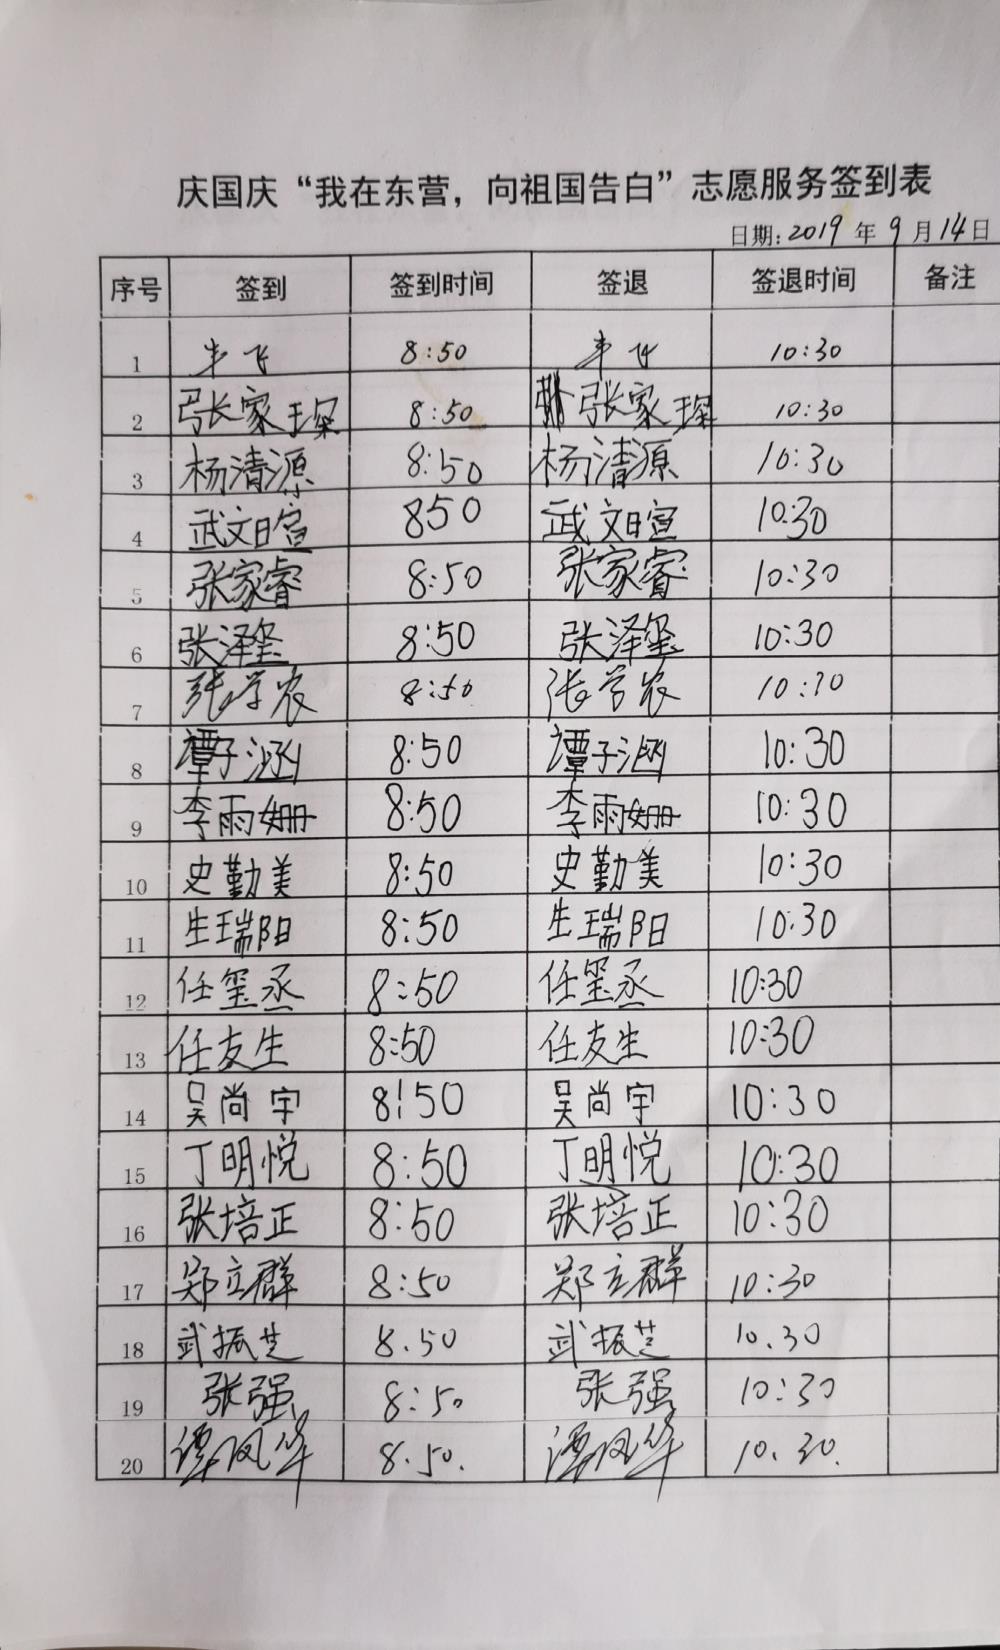 庆国庆“我在东营，向祖国告白”志愿服务签到表
日期：2019年9月14日
序号 签到 签到时间 签退 签退时间 备注
1 丰飞 8:50 丰飞 10:30
2 张家琛 8:50 张家琛 10:30
3 杨清源 8:50 杨清源 10:30
4 武文日宣 850 武文日宣 10:30
5 张家睿 8:50 张家睿 10:30
6 张泽玺 8:50 张泽玺 10:30
7 张学农 8:50 张学农 10:30
8 谭子涵 8:50 谭子涵 10:30
9 李雨姗 8:50 李雨姗 10:30
10 史勤美 8:50 史勤美 10:30
11 生瑞阳 8:50 生瑞阳 10:30
12 任玺丞 8:50 任玺丞 10:30
13 任友生 8:50 任友生 10:30
14 吴尚宇 8:50 吴尚宇 10:30
15 丁明悦 8:50 丁明悦 10:30
16 张培正 8:50 张培正 10:30
17 郑立群 8:50 郑立群 10:30
18 武振芝 8.50 武振芝 10.30
19 张强 8:50 张强 10:30
20 谭凤华 8.50. 谭凤华 10.30.